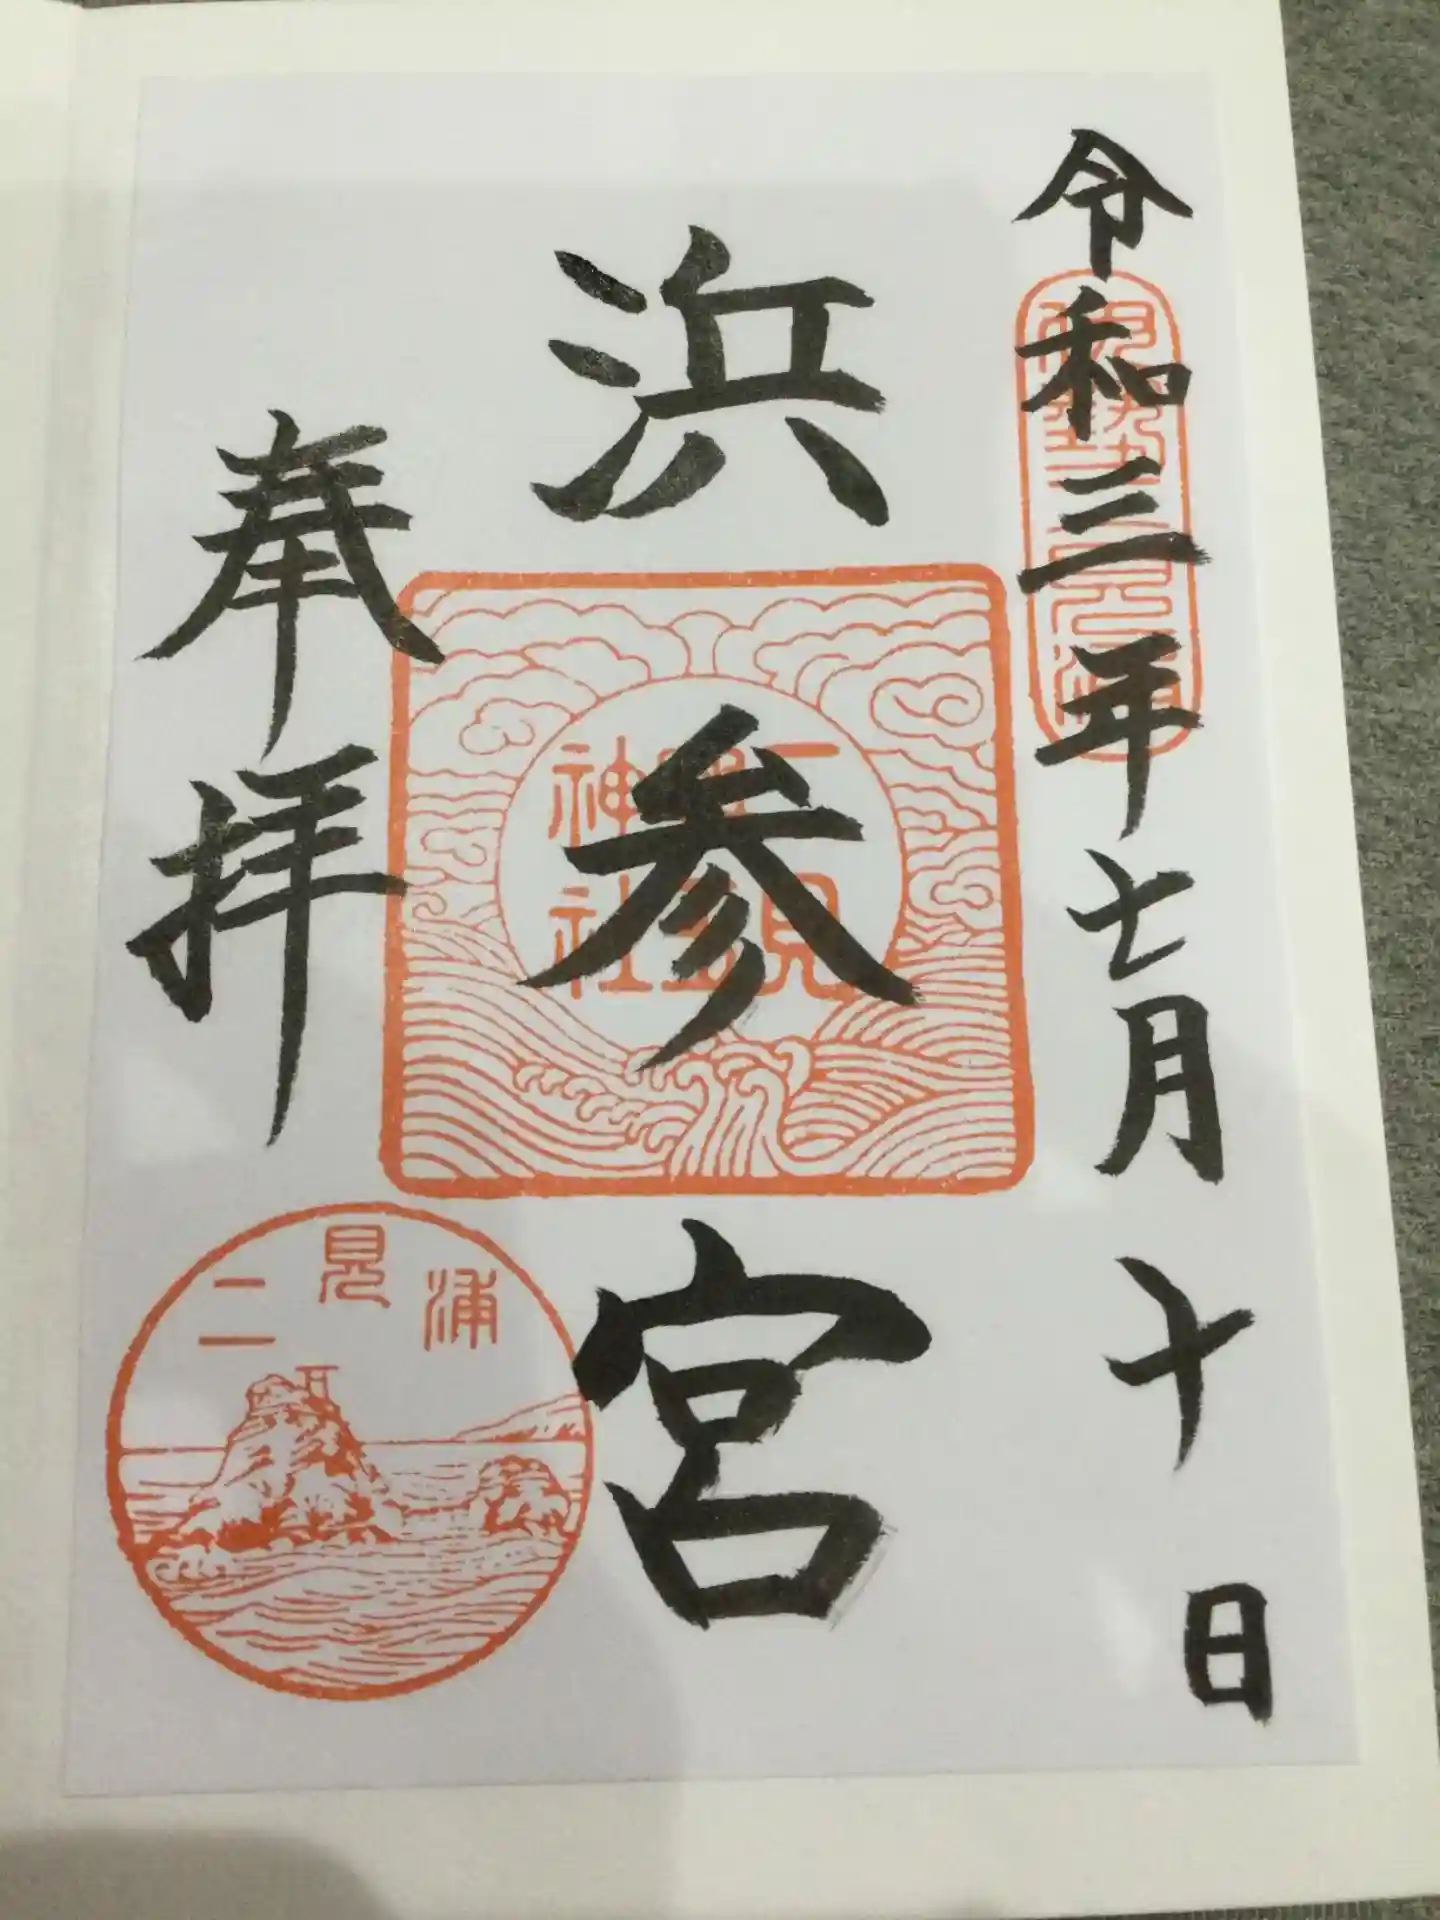 令和三年七月十日
浜参宮
二見興玉神社
奉拝
二見浦